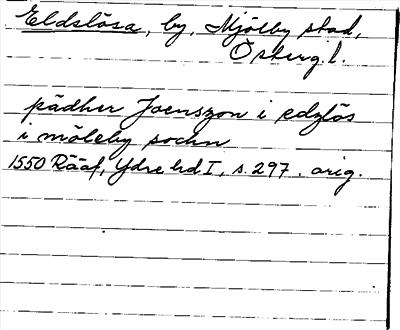 Eldslösa, by, Mjölby stad,
Österg.l.
pädher Joenszon i edzlös
i möleby sochn
1550 Rääf, Ydre hd I, s. 297. orig.